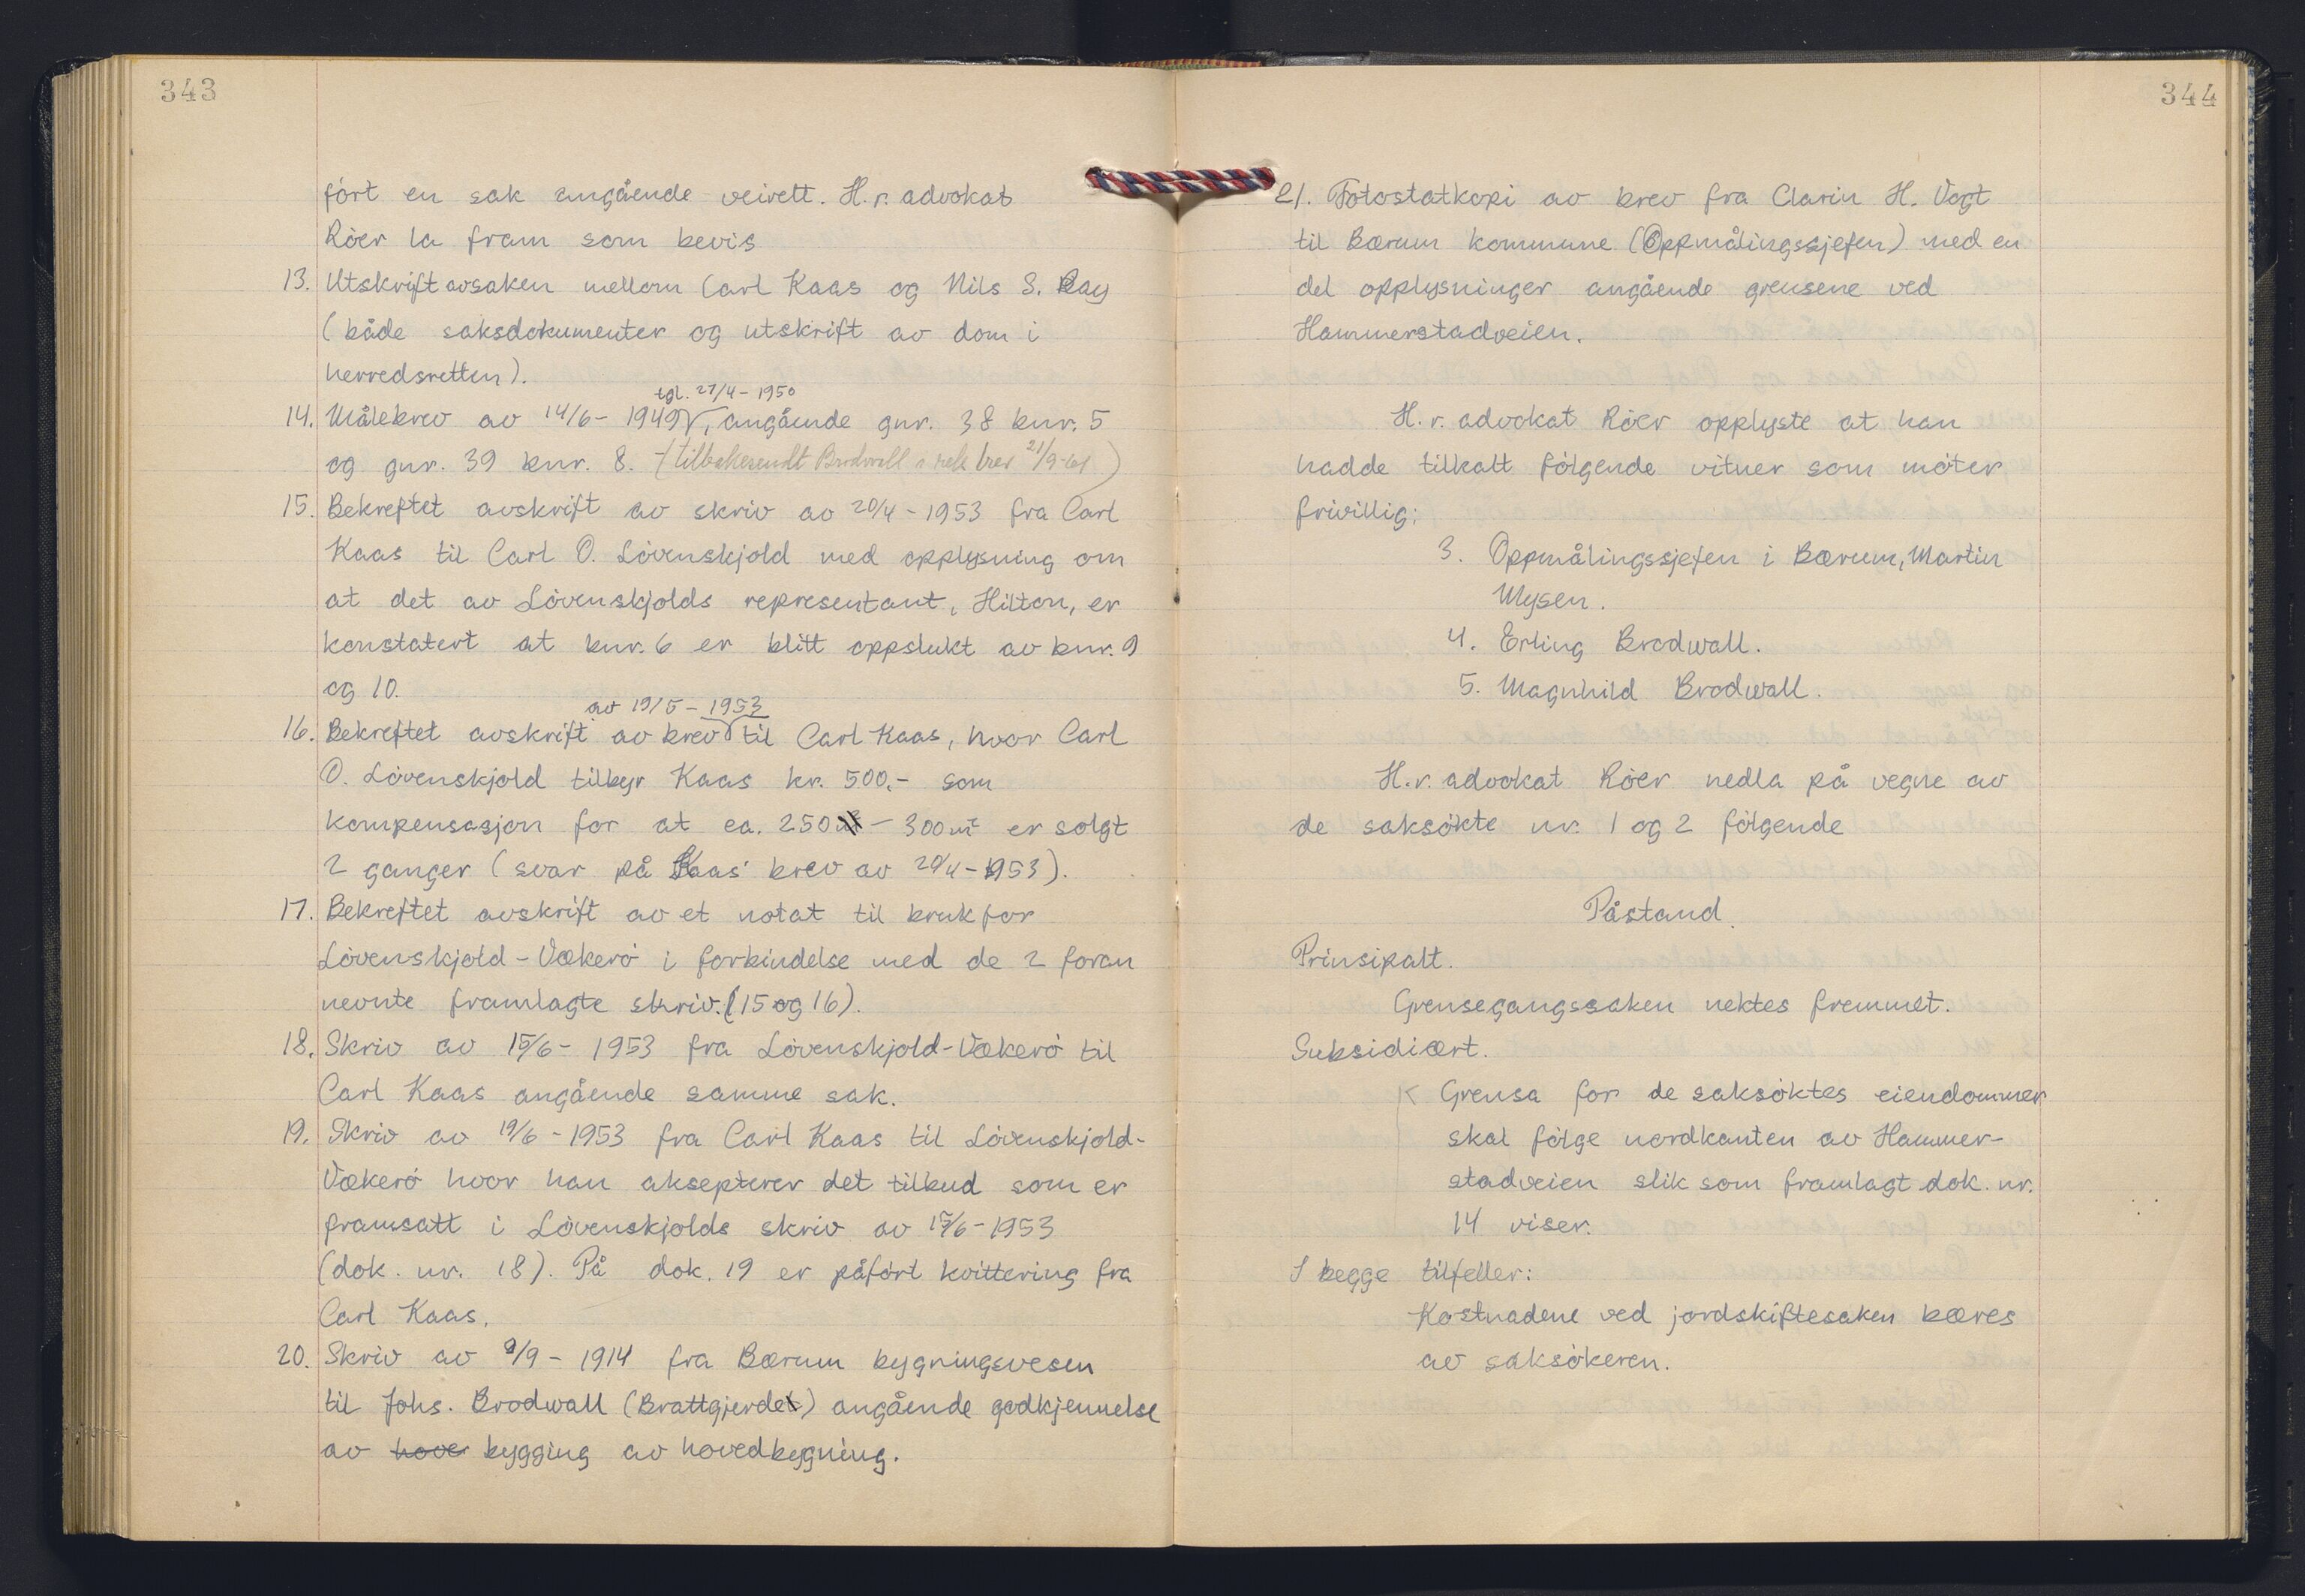 343
ført en sak angående veirett. H.r. advokat
Röer la fram som bevis
13. Utskrift av saken mellom Carl Kaas og Nils S. Bay
(både saksdokumenter og utskrift av dom i
herredsretten).
tgl. 27/4 - 1950
14. Målebrev av 14/6 - 1949, angående gnr. 38 bnr. 5
og gnr. 39 bnr. 8. (tilbakesendt Brodwall brev 21/9-61)
15. Bekreftet avskrift av skriv av 20/4 - 1953 fra Carl
Kaas til Carl O. Lövenskjold med opplysning om
at det av Lövenskjolds representant, Hilton, er
konstatert at bnr. 6 er blitt oppslukt av bnr. 9
og 10.
av 19/5 - 1953
16. Bekreftet avskrift av brev til Carl Kaas, hvor Carl
O. Lövenskjold tilbyr Kaas kr. 500,- som
kompensasjon for at ca. 250 - 300 m² er solgt
2 ganger (svar på Kaas' brev av 20/4 - 1953).
17. Bekreftet avskrift av et notat til bruk for
Lövenskjold - Vækerö i forbindelse med de 2 foran
nevnte framlagte skriv. (15 og 16).
18. Skriv av 15/6 - 1953 fra Lövenskjold-Vækerö til
Carl Kaas angående samme sak.
19. Skriv av 19/6 - 1953 fra Carl Kaas til Lövenskjold-
Vækerö hvor han aksepterer det tilbud som er
framsatt i Lövenskjolds skriv av 15/6 - 1953
(dok. nr. 18). På dok. 19 er påfört kvittering fra
Carl Kaas.
20. Skriv av 9/9 - 1914 fra Bærum bygningsvesen
til Johs. Brodwall (Brattgjerdet) angående godkjennelse
av hove bygging av hovedbygning.
344
21. Fotostatkopi av brev fra Clarin H. Vogt
til Bærum kommune (Oppmålingssjefen) med en
del opplysninger angående grensene ved
Hammerstadveien.
H.r. advokat Röer opplyste at han
hadde tilkalt fölgende vitner som möter
frivillig:
3. Oppmålingssjefen i Bærum, Martin
Mysen.
4. Erling Brodwall.
5. Magnhild Brodwall.
H.r. advokat Röer nedla på vegne av
de saksökte nr. 1 og 2 fölgende
Påstand.
Prinsipalt.
Grensegangssaken nektes fremmet.
Subsidiært.
Grensa for de saksöktes eiendommer
skal fölge nordkanten av Hammer-
stadveien slik som framlagt dok. nr.
14 viser.
I begge tilfeller:
Kostnadene ved jordskiftesaken bæres
av saksökeren.